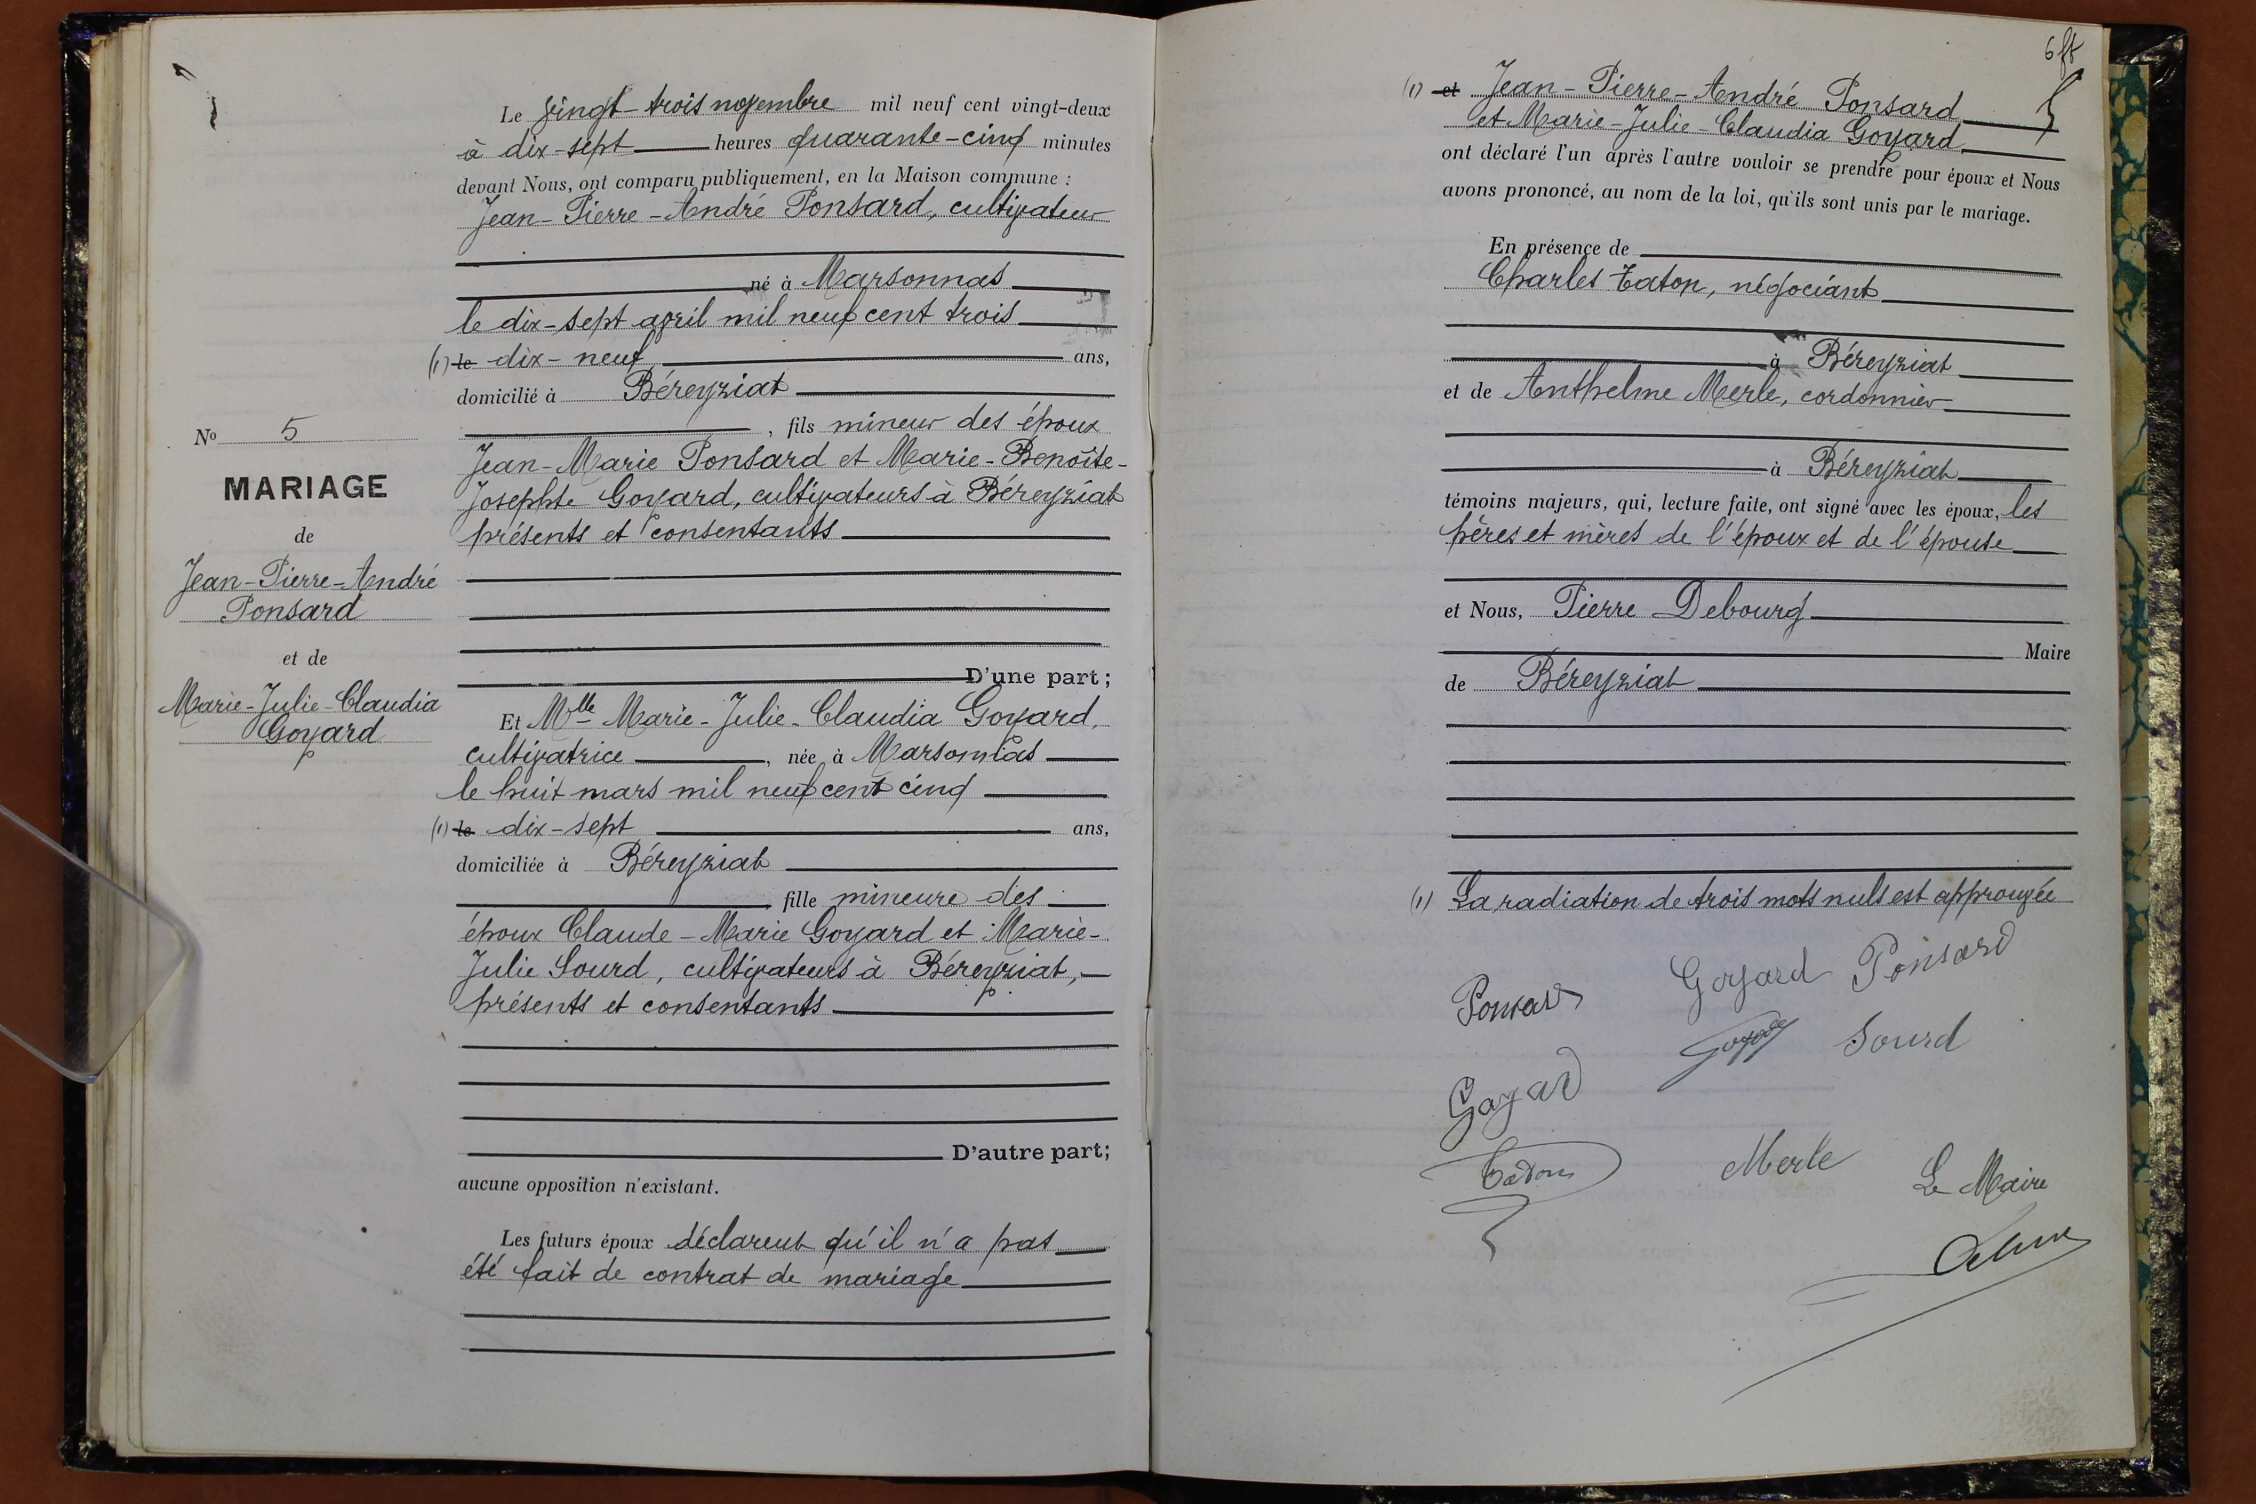 Nº 5
MARIAGE
de
Jean-Pierre-André
Ponsard
et de
Marie-Julie-Claudia
Goyard
Le vingt-trois novembre mil neuf cent vingt-deux
à dix-sept heures quarante-cinq minutes
devant Nous, ont comparu publiquement, en la Maison commune :
Jean-Pierre-André Ponsard, cultivateur
né à Marsonnas
le dix-sept avril mil neuf cent trois
(1) le dix-neuf ans,
domicilié à Béreyziat
, fils mineur des époux
Jean-Marie Ponsard et Marie-Benoîte-
Josephte Goyard, cultivateurs à Béreyziat
présents et consentants
D'une part ;
Et Mlle Marie-Julie-Claudia Goyard,
cultivatrice, née à Marsonnas
le huit mars mil neuf cent cinq
(1) le dix-sept ans,
domiciliée à Béreyziat
fille mineure des
époux Claude-Marie Goyard et Marie-
Julie Sourd, cultivateurs à Béreyziat,
présents et consentants
D'autre part ;
aucune opposition n'existant.
Les futurs époux déclarent qu'il n'a pas
été fait de contrat de mariage
6 ft
(1) et Jean-Pierre-André Ponsard
et Marie-Julie-Claudia Goyard
ont déclaré l'un après l'autre vouloir se prendre pour époux et Nous
avons prononcé, au nom de la loi, qu'ils sont unis par le mariage.
En présence de
Charles Taton, négociant
à Béreyziat
et de Anthelme Merle, cordonnier
à Béreyziat
témoins majeurs, qui, lecture faite, ont signé avec les époux, les
pères et mères de l'époux et de l'épouse
et Nous, Pierre Debourg
Maire
de Béreyziat
(1) La radiation de trois mots nuls est approuvée
Ponsard Goyard Ponsard
Goyard Sourd
Goyard
Taton Merle Le Maire